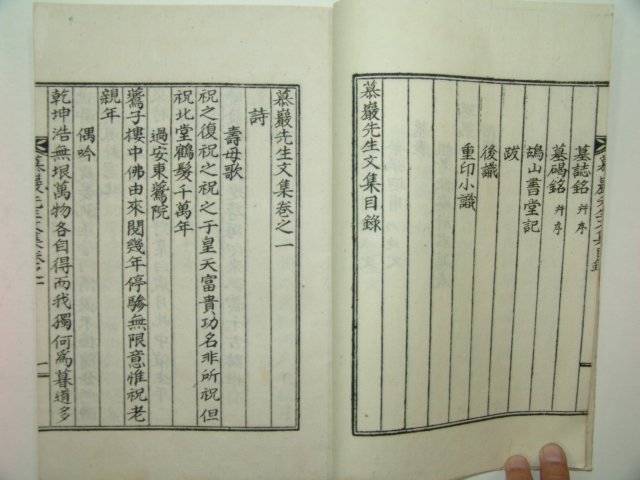 墓誌銘 并序
墓碣銘 并序
鴣山書堂記
跋
後識
重印小識
慕巖先生文集目錄
慕巖先生文集卷之一
詩
壽母歌
祝之復祝之祝之于皇天富貴功名非所祝但
祝北堂鶴髮千萬年
過安東鷰院
鷰子樓中佛由來閱幾年停驂無限意惟祝老
親年
偶吟
乾坤浩無垠萬物各自得而我獨何爲暮道多